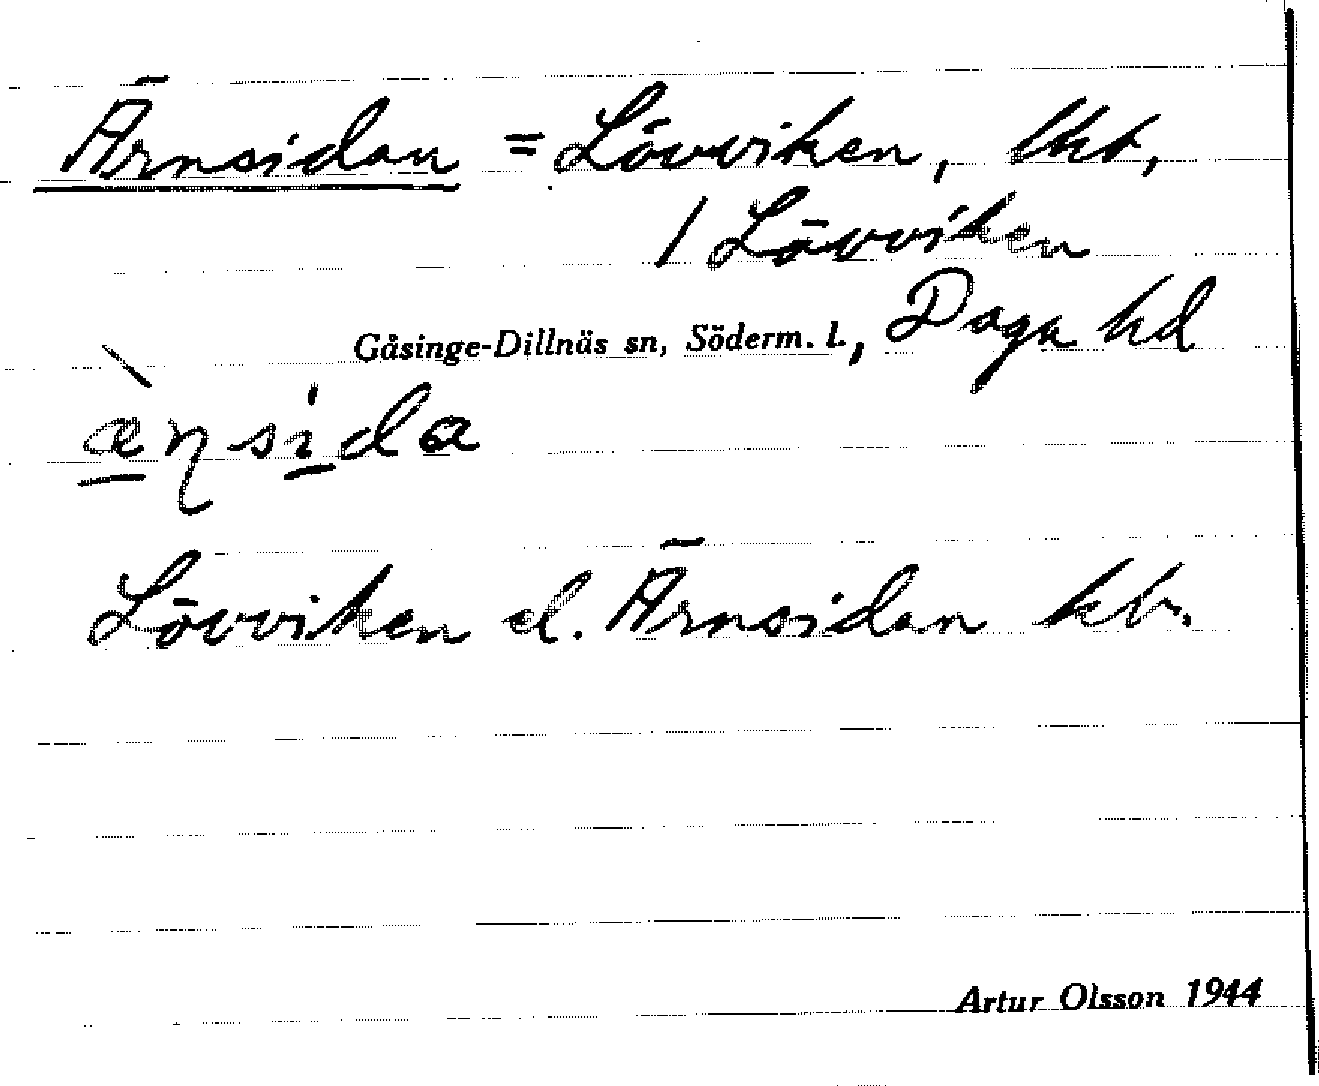 Ärnsidan = Lövviken, lht,
/ Lövviken
Gåsinge-Dillnäs sn, Söderm. l., Daga hd
æ̀ɳsida
Lövviken el. Ärnsidan kb.
Artur Olsson 1944